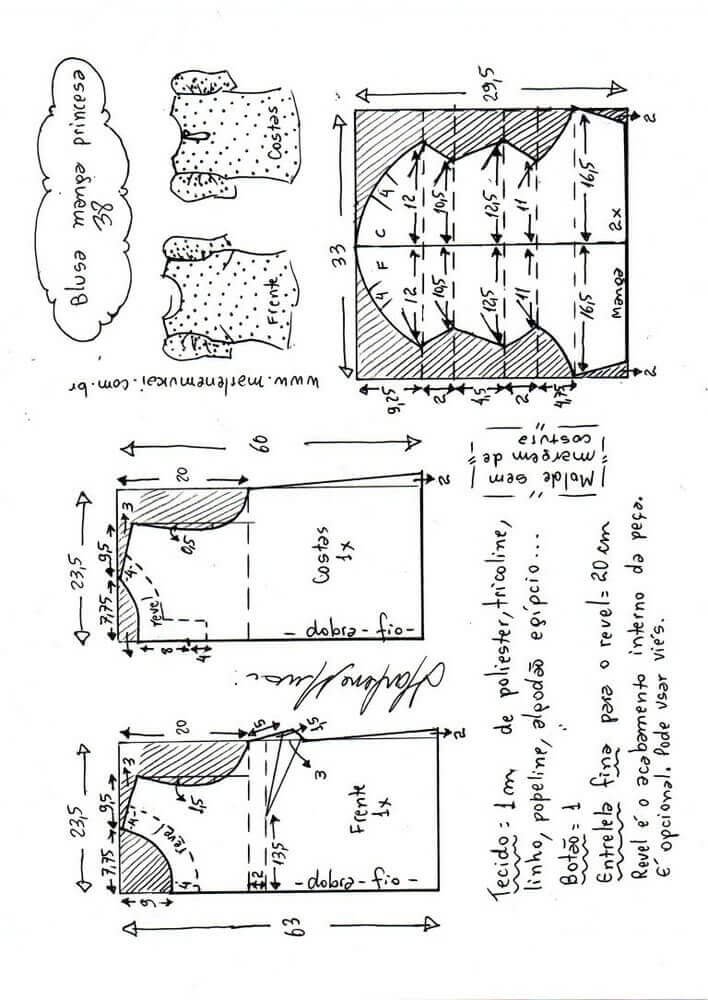 Blusa manga princesa
38
Costas
Frente
www.marlenemukai.com.br
29,5
33
4
C
F
4
12
10,5
12,5
11
16,5
12
10,5
12,5
11
16,5
2x
Manga
2
2
9,25
2
4,5
2
4,75
60
20
23,5
9,5
7,75
3
0,5
4
revel
8
4
Costas
1x
- dobra - fio -
2
Molde sem
margem de
costura
63
20
23,5
9,5
7,75
9
3
1,5
4
revel
4
5
1,5
3
2
13,5
Frente
1x
- dobra - fio -
2
Tecido = 1m de poliester, tricoline,
linho, popeline, algodão egípcio...
Botão = 1
Entretela fina para o revel = 20 cm
Revel é o acabamento interno da peça.
É opcional. Pode usar viés.